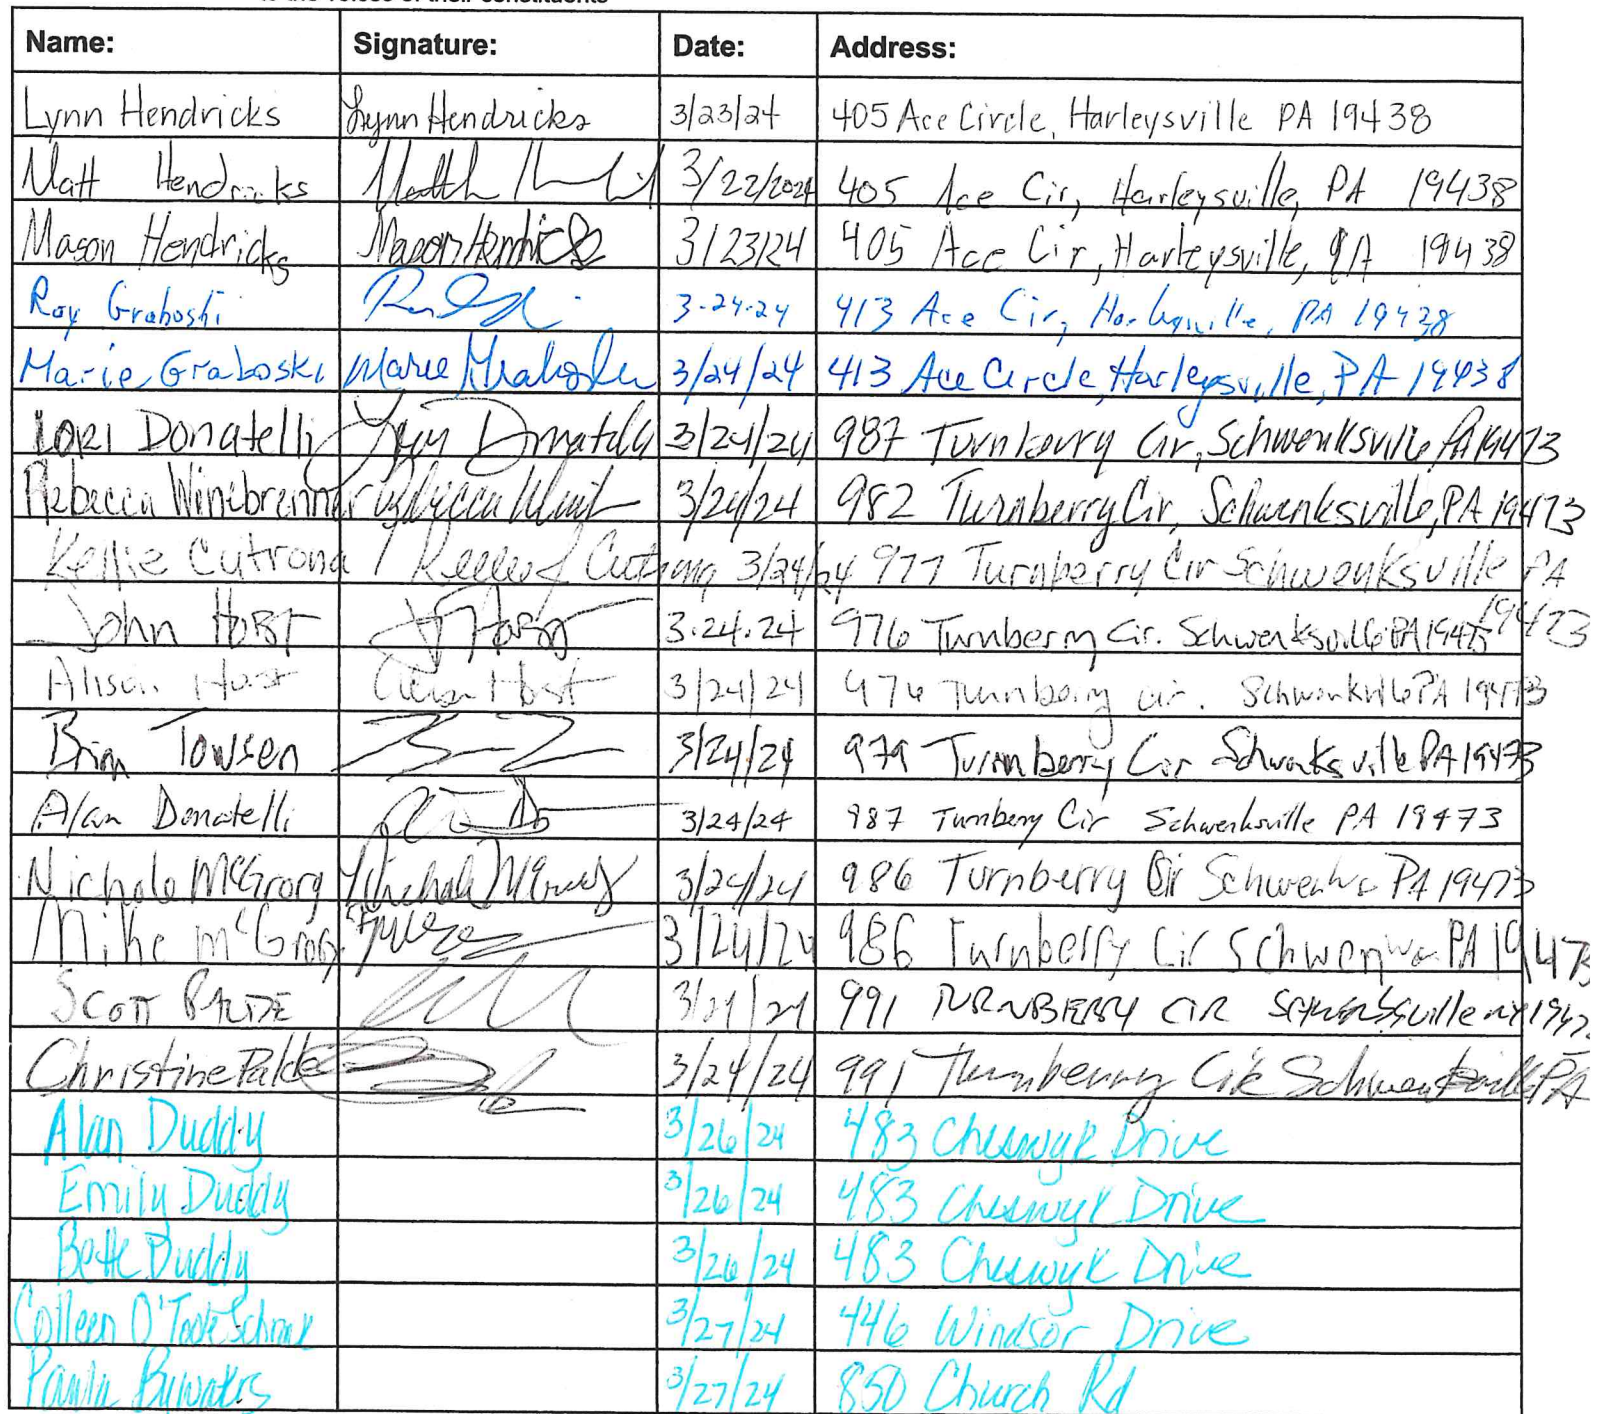 to the voices of their constituents
Name: Signature: Date: Address:
Lynn Hendricks Lynn Hendricks 3/23/24 405 Ace Circle, Harleysville PA 19438
Matt Hendricks 3/22/2024 405 Ace Cir, Harleysville, PA 19438
Mason Hendricks Mason Hendricks 3/23/24 405 Ace Cir, Harleysville, PA 19438
Roy Graboski 3-24-24 413 Ace Cir, Harleysville, PA 19438
Marie Graboski Marie Graboski 3/24/24 413 Ace Circle, Harleysville, PA 19438
Lori Donatelli Lori Donatelli 3/24/24 987 Turnberry Cir, Schwenksville PA 19473
Rebecca Winebrenner 3/24/24 982 Turnberry Cir, Schwenksville, PA 19473
Kellie Cutrona / Kellie Cutrona 3/24/24 977 Turnberry Cir Schwenksville PA
19473
John Horst 3.24.24 976 Turnberry Cir. Schwenksville PA 19473
Alison Horst Horst 3/24/24 976 Turnberry Cir. Schwenksville PA 19473
Brian Towsen 3/24/24 979 Turnberry Cir Schwenksville PA 19473
Alan Donatelli 3/24/24 987 Turnberry Cir Schwenksville PA 19473
Nichole McGrory Nichole McGrory 3/24/24 986 Turnberry Cir PA 19473
Mike McGrory 3/24/24 986 Turnberry Cir PA 19473
Scott 3/24/24 991 TURNBERRY CIR
Christine Palde 3/24/24 991 Turnberry Cir Schwenksville PA
Alan Duddy 3/26/24 483 Cheswyk Drive
Emily Duddy 3/26/24 483 Cheswyk Drive
Bette Duddy 3/26/24 483 Cheswyk Drive
Colleen O'Toole 3/27/24 446 Windsor Drive
Paula Bywaters 3/27/24 850 Church Rd